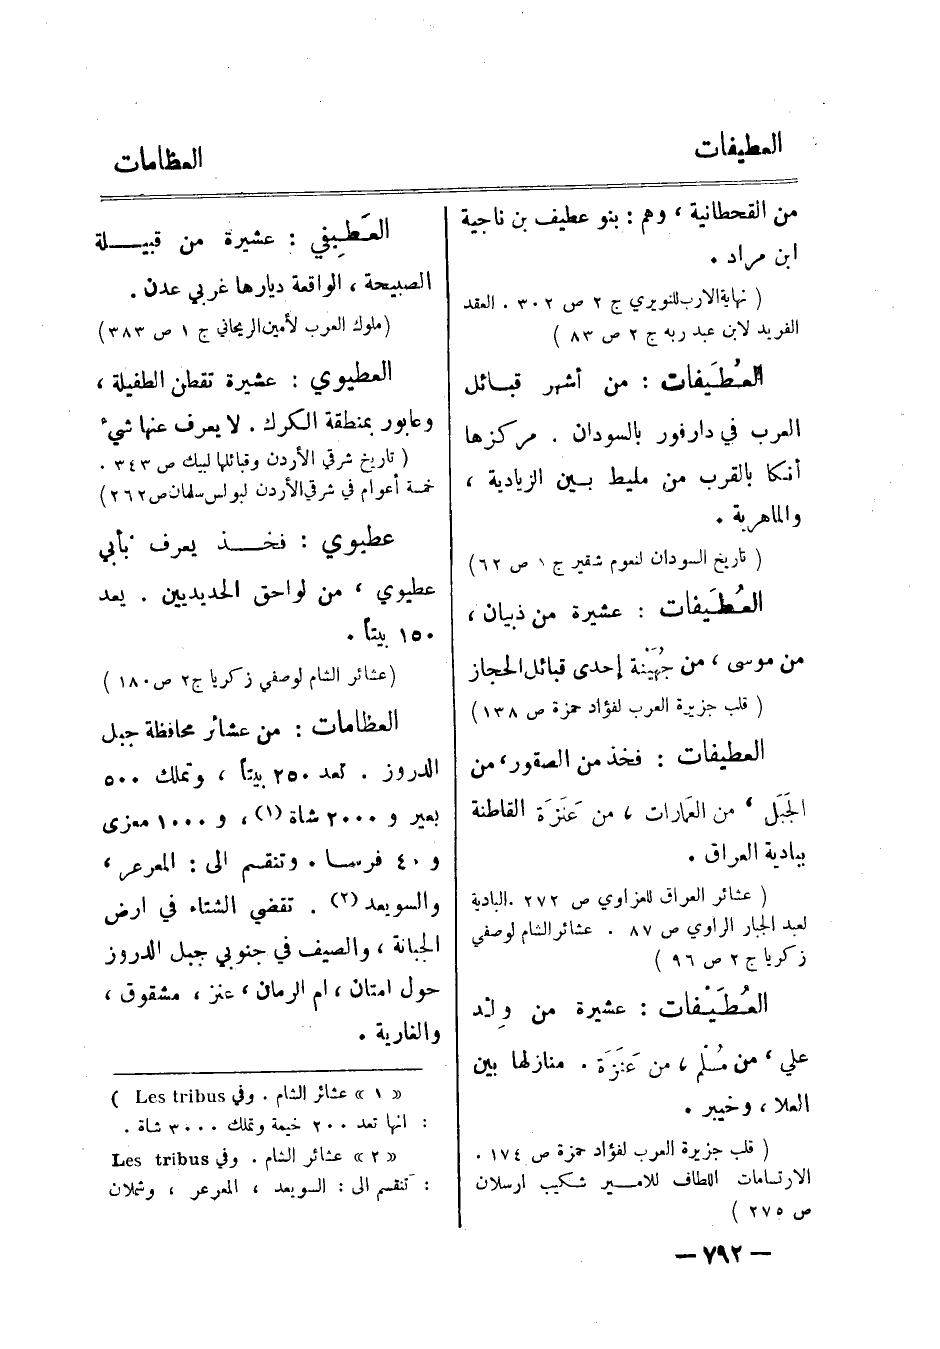 العطيفات
العظامات
من القحطانية ، وهم : بنو عطيف بن ناجية
ابن مراد .
( نهاية الارب للنويري ج ٢ ص ٣٠٢ . العقد
الفريد لابن عبد ربه ج ٢ ص ٨٣ )
العُطَيفات : من أشهر قبائل
العرب في دارفور بالسودان . مركزها
أنكا بالقرب من مليط بين الزيادية ،
والماهرية .
( تاريخ السودان لنعوم شقير ج ١ ص ٦٢)
العُطَيفات : عشيرة من ذبيان ،
من موسى ، من جُهَيْنة إحدى قبائل الحجاز
( قلب جزيرة العرب لفؤاد حمزة ص ١٣٨)
العطيفات : فخذ من الصقور ، من
الجَبَل ، من العمارات ، من عَنَزَة القاطنة
ببادية العراق .
( عشائر العراق للعزاوي ص ٢٧٢ . البادية
لعبد الجبار الراوي ص ٨٧ . عشائر الشام لوصفي
زكريا ج ٢ ص ٩٦ )
العُطَيْفات : عشيرة من وِلْد
علي ، من مُسْلم ، من عَنَزَة . منازلها بين
العلا ، وخيبر .
( قلب جزيرة العرب لفؤاد حمزة ص ١٧٤ .
الارتسامات اللطاف للامير شكيب ارسلان
ص ٢٧٥ )
العَطِيفي : عشيرة من قبيلة
الصبيحة ، الواقعة ديارها غربي عدن .
(ملوك العرب لأمين الريحاني ج ١ ص ٣٨٣)
العطيوي : عشيرة تقطن الطفيلة ،
وعابور بمنطقة الكرك . لا يعرف عنها شيء
( تاريخ شرقي الأردن وقبائلها لبيك ص ٣٤٣ .
خمسة أعوام في شرقي الأردن لبولس سلمان ص ٢٦٢)
عطيوي : فخذ يعرف بأبي
عطيوي ، من لواحق الحديديين . يعد
١٥٠ بيتاً .
(عشائر الشام لوصفي زكريا ج٢ ص١٨٠ )
العظامات : من عشائر محافظة جبل
الدروز . تعد ٢٥٠ بيتاً ، وتملك ٥٠٠
بعير و ٢٠٠٠ شاة (١) ، و ١٠٠٠ معزى
و ٤٠ فرسا . وتنقسم الى : المعرعر ،
والسويعد (٢) . تقضي الشتاء في ارض
الجبانة ، والصيف في جنوبي جبل الدروز
حول امتان ، ام الرمان ، عنز ، مشقوق ،
والغارية .
« ١ » عشائر الشام . وفي Les tribus )
: انها تعد ٢٠٠ خيمة وتملك ٣٠٠٠ شاة .
« ٢ » عشائر الشام . وفي Les tribus
: تنقسم الى : السويعد ، المعرعر ، وشملان
— ٧٩٢ —